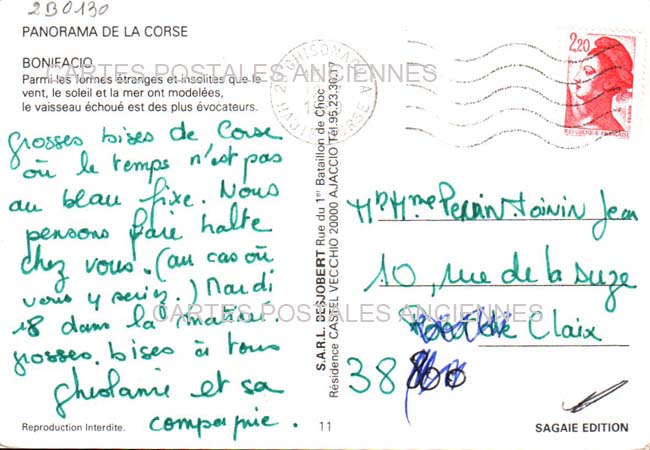 2B0130
PANORAMA DE LA CORSE
BONIFACIO
Parmi les formes étranges et insolites que le
vent, le soleil et la mer ont modelées,
le vaisseau échoué est des plus évocateurs.
CARTES POSTALES ANCIENNES
GHISONACCIA
HAUTE CORSE
2,20
REPUBLIQUE FRANÇAISE
grosses bises de Corse
où le temps n'est pas
au beau fixe. Nous
pensons faire halte
chez vous. (au cas où
vous y seriez.) Mardi
18 dans la matinée.
grosses bises à tous
Ghislanie et sa
compagnie.
S.A.R.L. DESJOBERT Rue du 1er Bataillon de Choc
Résidence CASTEL VECCHIO 20000 AJACCIO Tél. 95.23.30.17
Mr Mme Perrin Toinin Jean
10, rue de la Suze
CARTES POSTALES ANCIENNES
Claix
38 800
Reproduction Interdite.
11
SAGAIE EDITION